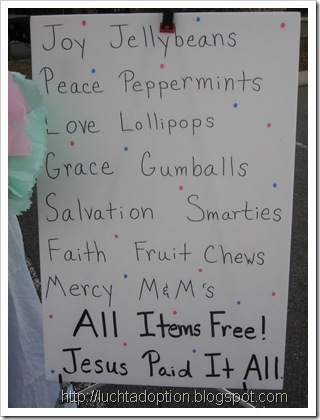 Joy Jellybeans
Peace Peppermints
Love Lollipops
Grace Gumballs
Salvation Smarties
Faith Fruit Chews
Mercy M&M's
All Items Free!
Jesus Paid It All.
http://luchtadoption.blogspot.com